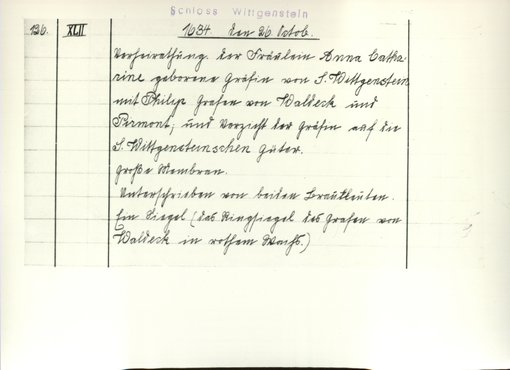 Schloss Wittgenstein
136. XLII 1634 den 26 Octob.
Verheirathung der Fräulein Anna Catha
rine geborene Gräfin von S. Wittgenstein
mit Philip Grafen von Waldeck und
Pirmont, und Verzicht der Gräfin auf die
S. Wittgensteinschen Güter.
große Membran.
Unterschrieben von beiden Brautleuten.
Ein Siegel (das Ringsiegel des Grafen von
Waldeck in rothem Wachs.)